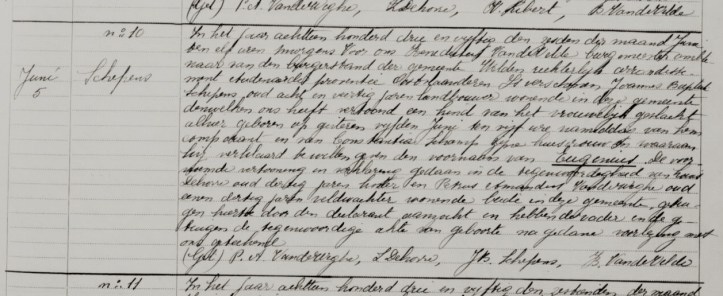 (Get) P.A. Vandwinghe, L. Dehove, H. Hebert, B. VandeVelde
n:o 10
Juni
5
Schepens
In het jaar achttien honderd drie en vyftig den zesden der maand Juni
ten elf uren smorgens Voor ons VandeVelde burgmeester
van den burgerstand der gemeente Welden rechterlyk
audenaerde provintie Oostvlaanderen Is verschenen Joannes Baptist
Schepens, oud acht en jaren landbouwer wonende in deze gemeente
denwelken ons heeft vertoond een kind van het vrouwelyk geslacht
alhier geboren op gisteren vyfden Juni ten vyf ure namiddag van hem
comparant en van Constantia zyne huisvrouw en waaraan
hy verklaard te willen geven den voornaam van Eugenius. De voor
noemde vertooning en verklaring gedaan in de tegenwoordigheid van
Dehove oud dertig jaren en Petrus Amandus Vandwinghe oud
dertig jaren veldwachter wonende beide in deze gemeente,
door den declarant aanzocht en hebben de vader en de ge-
tuigen de tegenwoordige akte van geboorte na gedane voorlezing met
ons geteekend
(Get) P.A. Vandwinghe, L. Dehove, J.B. Schepens, B. VandeVelde
n:o 11
In het jaar achttien honderd drie en vyftig den zesden der maand